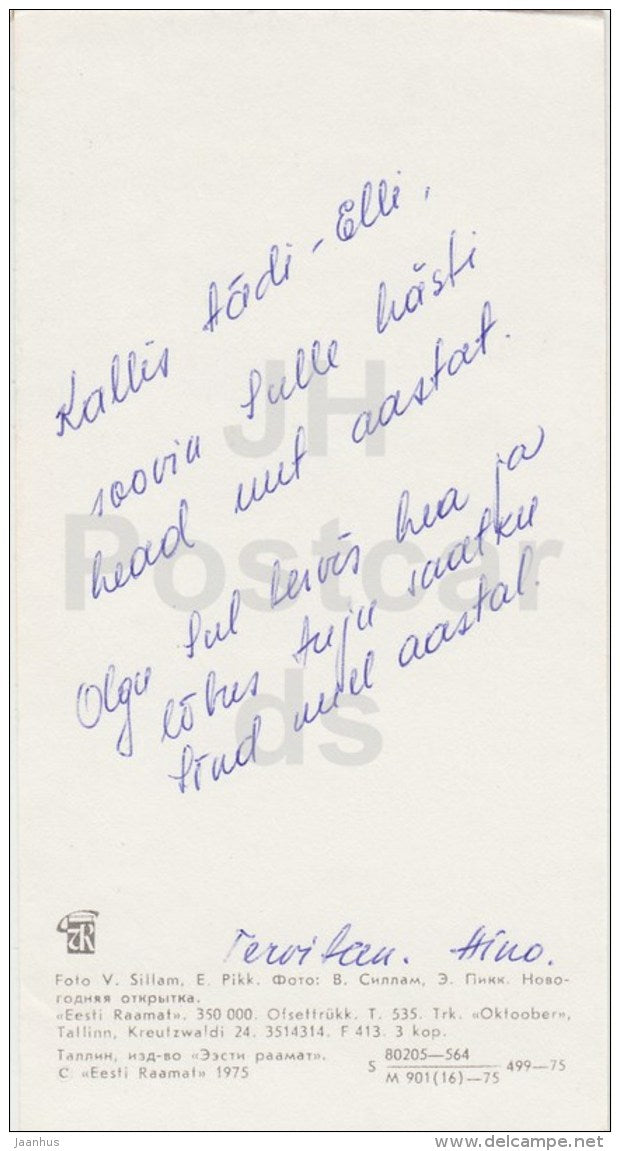 Kallis tädi-Elli,
soovin Sulle hästi
head uut aastat.
Olgu Sul tervis hea ja
lõbus tuju saatku
Sind uuel aastal.
Tervitan. Aino.
JH
Postcar
ds
Foto V. Sillam, E. Pikk. Фото: В. Силлам, Э. Пикк. Ново-
годняя открытка.
«Eesti Raamat». 350 000. Ofsettrükk. T. 535. Trk. «Oktoober»,
Tallinn, Kreutzwaldi 24. 3514314. F 413. 3 kop.
Таллин, изд-во «Ээсти раамат».
C. «Eesti Raamat» 1975
S 80205—564 499—75
M 901(16)—75
jaanhus
www.delcampe.net